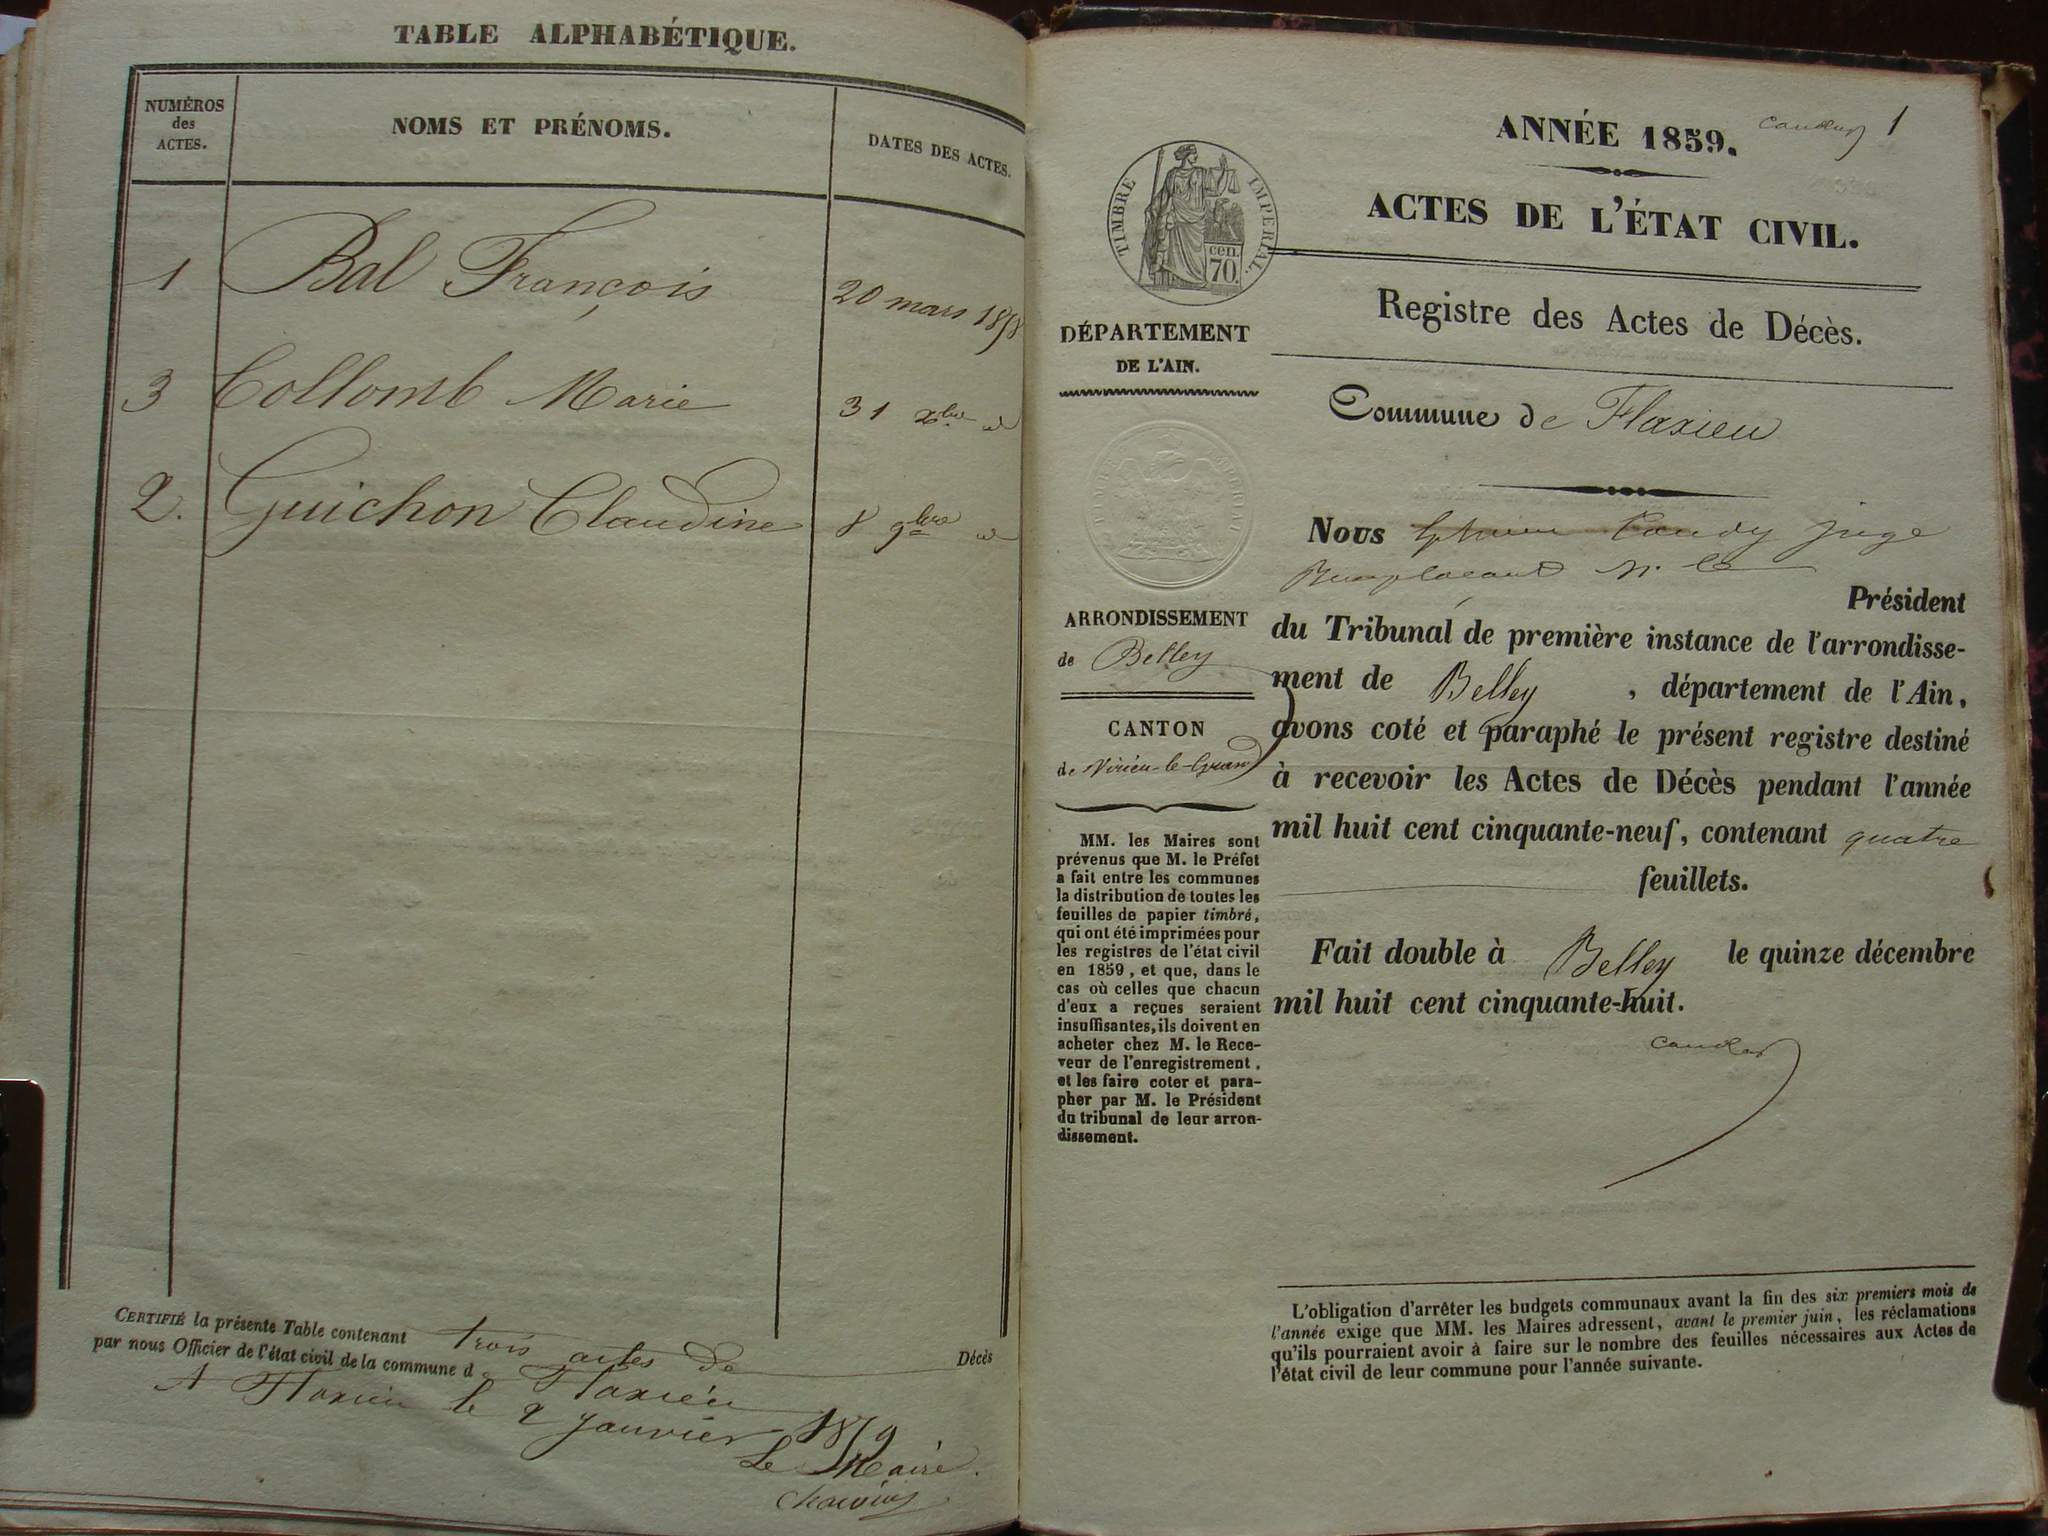 TABLE ALPHABÉTIQUE.
NUMÈROS
des
ACTES.
NOMS ET PRÉNOMS.
DATES DES ACTES.
1 Bal François 20 mars 1858
3 Collomb Marie 31 xbre id
2. Guichon Claudine 8 9bre id
CERTIFIÉ la présente Table contenant trois actes de Décès
par nous Officier de l'état civil de la commune d Flaxieu
A Flaxieu le 2 Janvier 1859
Le Maire
ANNÉE 1859.
1
ACTES DE L'ÉTAT CIVIL.
TIMBRE IMPERIAL.
cen.
70.
Registre des Actes de Décès.
DÉPARTEMENT
DE L'AIN.
Commune de Flaxieu
ARRONDISSEMENT
de Belley
CANTON
de Virieu-le-Grand
MM. les Maires sont
prévenus que M. le Préfet
a fait entre les communes
la distribution de toutes les
feuilles de papier timbré,
qui ont été imprimées pour
les registres de l'état civil
en 1859, et que, dans le
cas où celles que chacun
d'eux a reçues seraient
insuffisantes, ils doivent en
acheter chez M. le Rece-
veur de l'enregistrement,
et les faire coter et para-
pher par M. le Président
du tribunal de leur arron-
dissement.
Nous juge
Remplacant M. le
Président
du Tribunal de première instance de l'arrondisse-
ment de Belley, département de l'Ain,
avons coté et paraphé le présent registre destiné
à recevoir les Actes de Décès pendant l'année
mil huit cent cinquante-neuf, contenant quatre
feuillets.
Fait double à Belley le quinze décembre
mil huit cent cinquante-huit.
L'obligation d'arrêter les budgets communaux avant la fin des six premiers mois de
l'année exige que MM. les Maires adressent, avant le premier juin, les réclamations
qu'ils pourraient avoir à faire sur le nombre des feuilles nécessaires aux Actes de
l'état civil de leur commune pour l'année suivante.